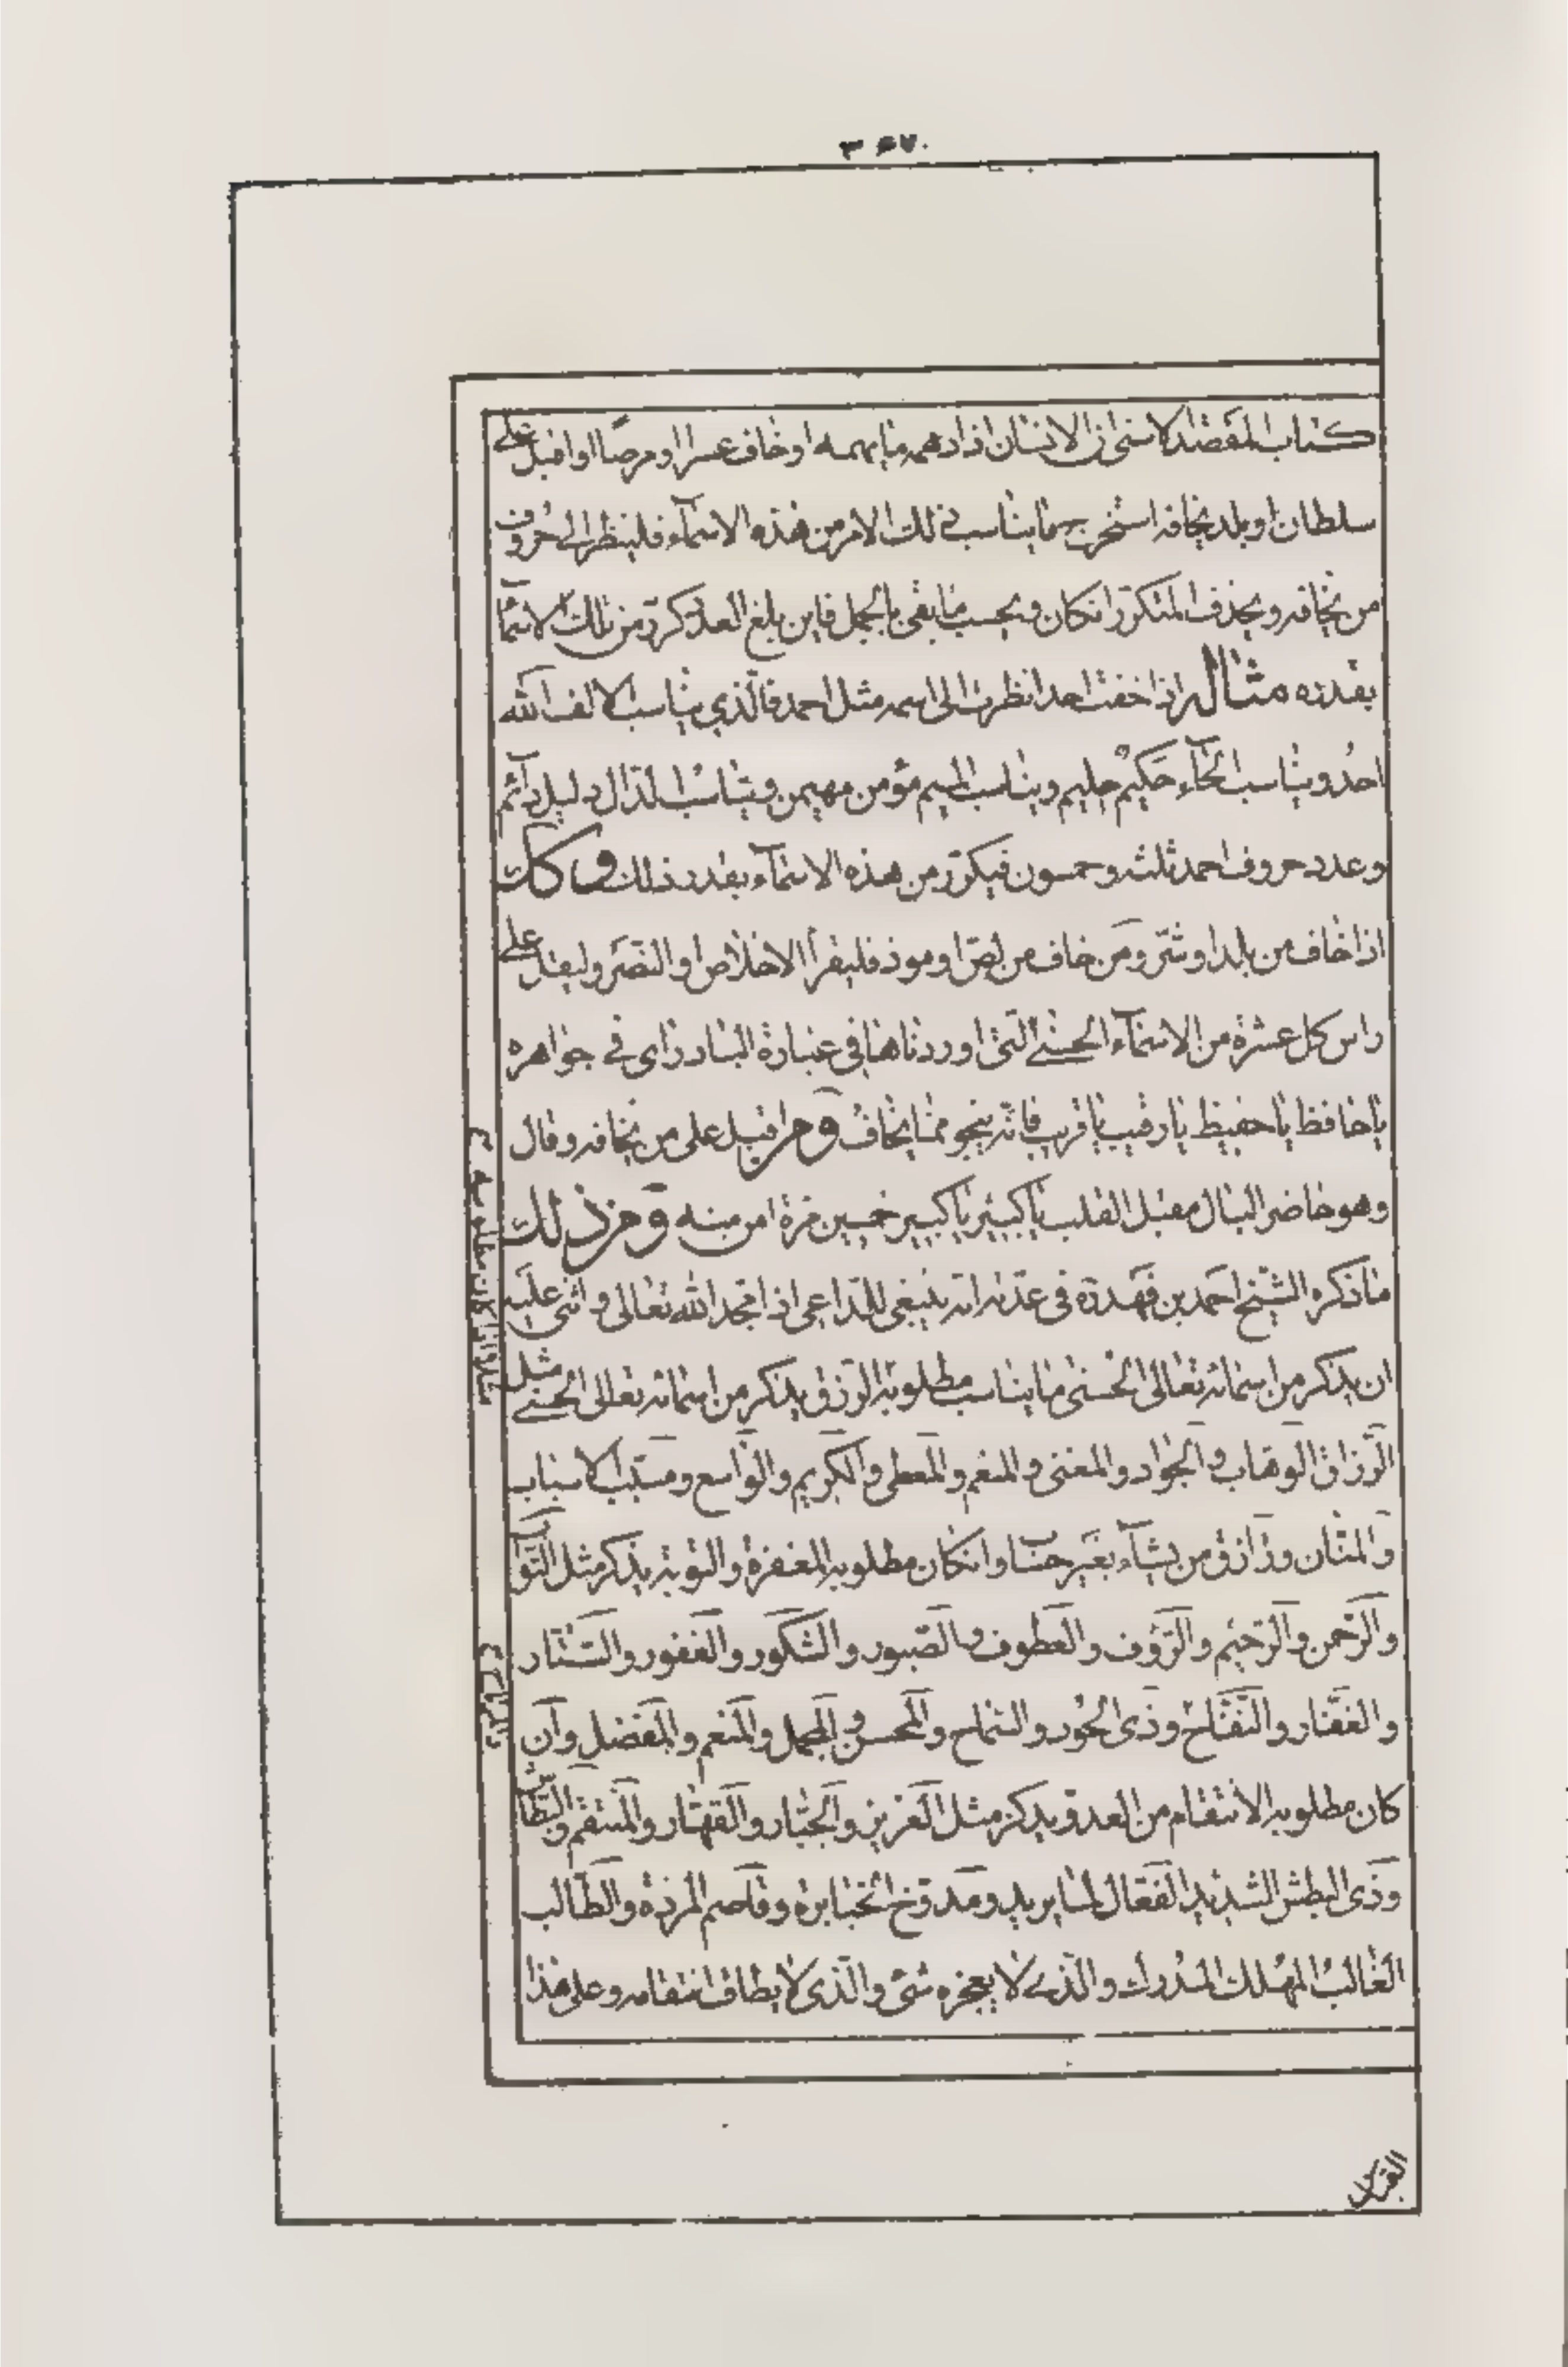 ٣٤٧
كتاب المقصد الاسنى ان الانسان اذا دهمه ما يهمه او خاف عسرا او مرضا او اقبل على
سلطان او بلد يخافه استخرج ما يناسب ذلك الامر من هذه الاسمآء فلينظر الى حروف
من يخافه ويحذف المتكرّر انكان ويحسب ما بقى بالجمل فاين بلغ العدد كرّر من تلك الاسمآ
بقدره مثال اذا خفت احدا نظرت الى اسمه مثل احمد فالّذي يناسب الالف الله
احدُ ويناسب الحآء حَكيمٌ حليم ويناسب الميم مؤمن مهيمن ويناسبُ الدّال دليل دآئم
وعدد حروف احمد ثلثه وخمسون فيكرّر من هذه الاسمآء بقدر ذلك وكك
اذا خاف من بلد او شرّ ومَن خاف من لصّ او موذ فليقرأ الاخلاص والنّصر وليقل على
راس كل عشرة من الاسمآء الحسنى الّتى اوردناها فى عبارة البادراى في جواهره
يا حافظ يا حفيظ يا رقيب يا قريب فانّه ينجو ممّا يخافُ وَمن اقبل على من يخافه وقال
وهو حاضر البال مقبل القلب يا كبير يا كبير خمسين مرة امن منه وَمن ذلك
ما ذكره الشّيخ احمد بن فَهَد ره فى عدّته انه ينبغى للدّاعى اذا مجد الله تعالى واثنى عليه
ان يذكر من اسمائه تعالى الحُسنى ما يناسب مطلوبه الرّزق يذكر من اسمائه تعالى الحسنى مثل
الرّزاق الوهّاب والجواد والمغنى والمنعم والمعطى والكريم والواسع ومسبّب الاسباب
والمنّان ورازق من يشآء بغير حساب وانكان مطلوبه المغفرة والتوبة يذكر مثل التّوّاب
والرّحمن والرّحيم والرّؤف والعطوف والصّبور والشّكور والغفور والسّتّار
والغفّار والنّفّاح وذى الجود والسّماح والمحسن والمجمل والمنعم والمفضل وان
كان مطلوبه الانتقام من العدوّ يذكر مثل العزيز والجبّار والقهّار والمنتقم والبطّاش
وذى البطش الشديد الفعّال لما يريد ومدوّخ الجبابرة وقاصم المردة والطّالب
الغالبُ المهلك المدرك والّذى لا يعجزه شئ والّذى لا يطاق انتقامه وعلى هذا